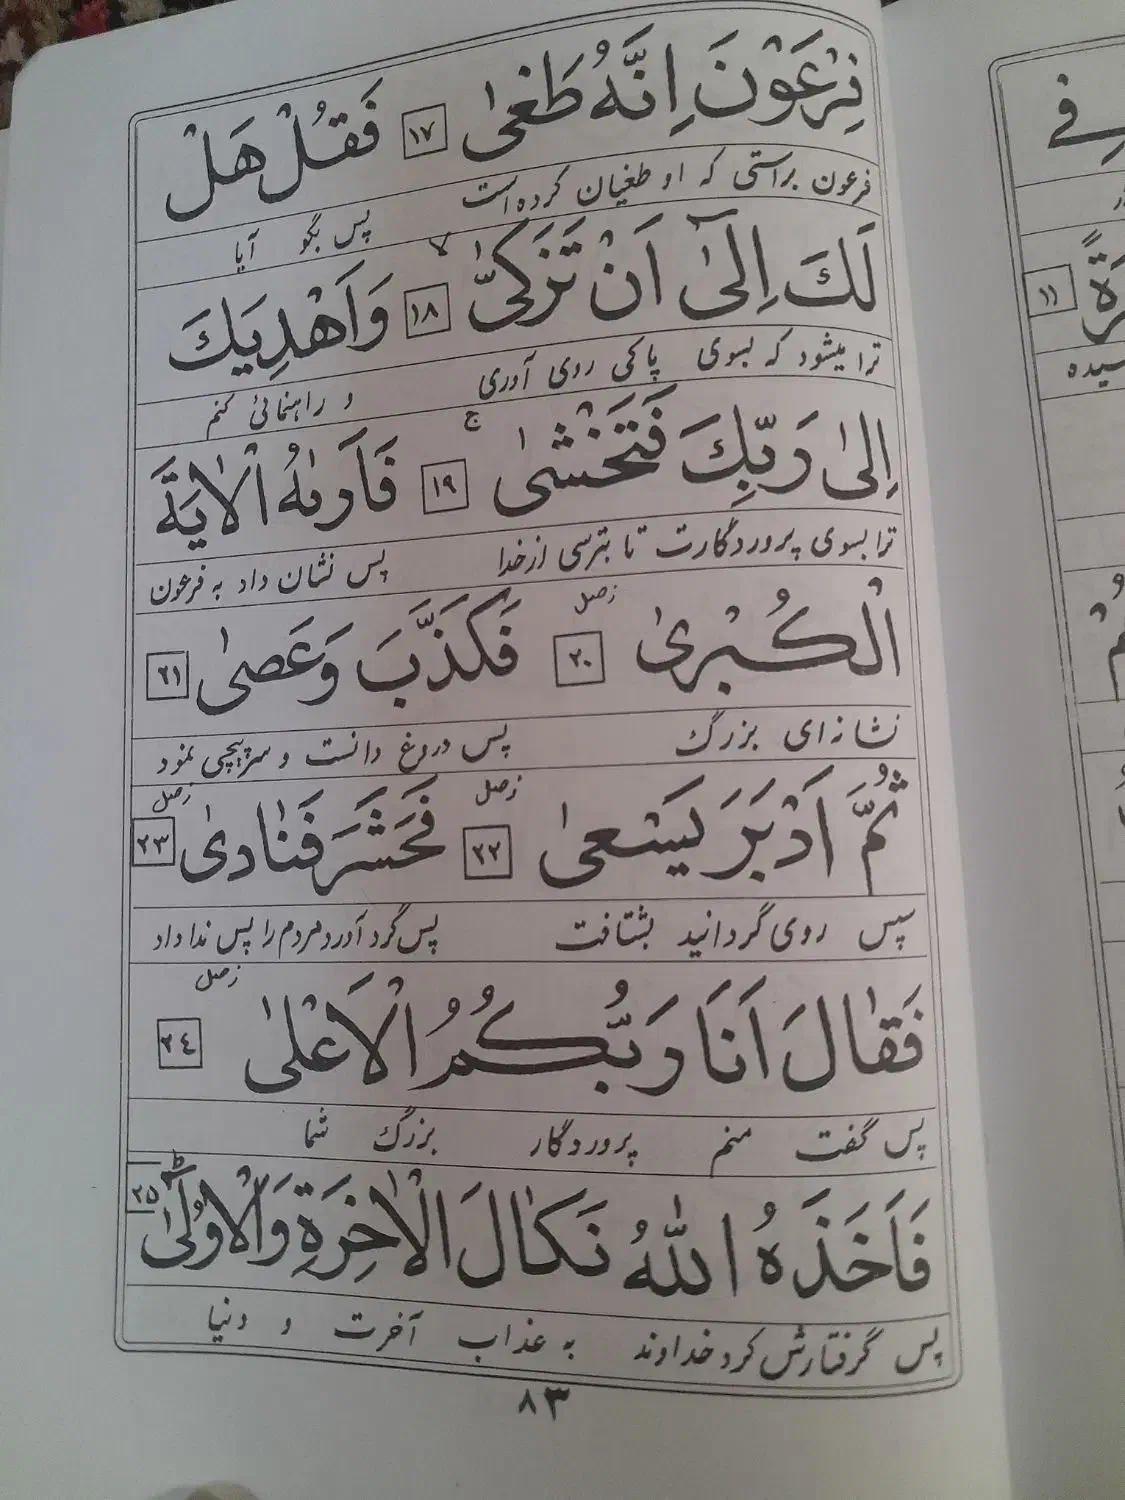 فِرْعَوْنَ اِنَّهُ طَغىٰ ١٧ فَقُلْ هَلْ
فرعون براستی که او طغیان کرده است پس بگو آیا
لَكَ اِلىٰٓ اَنْ تَزَكّىٰ لا ١٨ وَاَهْدِيَكَ
ترا میشود که بسوی پاکی روی آوری و راهنمائی کنم
اِلىٰ رَبِّكَ فَتَخْشىٰ ج ١٩ فَاَرٰىهُ الْاٰيَةَ
ترا بسوی پروردگارت تا بترسی از خدا پس نشان داد به فرعون
الْكُبْرىٰ زصل ٢٠ فَكَذَّبَ وَعَصىٰ ٢١
نشانه‌ای بزرگ پس دروغ دانست و سرپیچی نمود
ثُمَّ اَدْبَرَ يَسْعىٰ زصل ٢٢ فَحَشَرَ فَنَادىٰ زصل ٢٣
سپس روی گردانید بشتافت پس گرد آورد مردم را پس ندا داد
فَقَالَ اَنَا رَبُّكُمُ الْاَعْلىٰ زصل ٢٤
پس گفت منم پروردگار بزرگ شما
فَاَخَذَهُ اللّٰهُ نَكَالَ الْاٰخِرَةِ وَالْاُولىٰ ط ٢٥
پس گرفتارش کرد خداوند به عذاب آخرت و دنیا
٨٣
فِي
١١
سیده